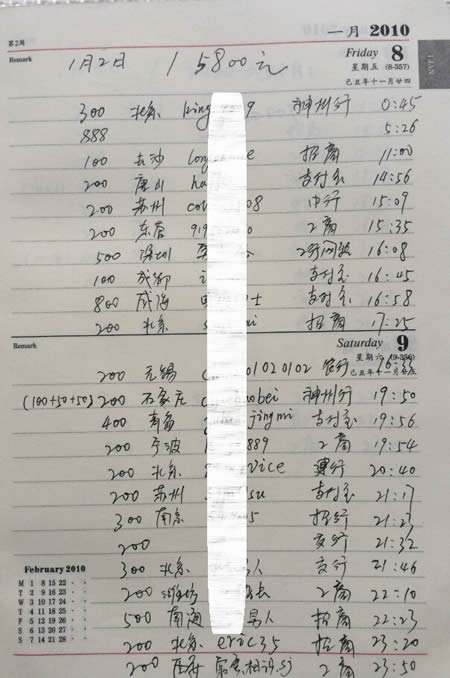 第2周
一月 2010
Remark
Friday 8
星期五 (8-357)
己丑年十一月廿四
JAN
1月2日 15800元
300 北京 king 9 神州行 0:45
888 5:26
100 长沙 long e 招商 11:00
200 唐山 ha 支付宝 14:56
200 苏州 co 08 中行 15:09
200 东莞 919 0 工商 15:35
500 深圳 16:08
100 成都 支付宝 16:45
800 威海 士 支付宝 16:58
200 北京 s i 招商 17:25
Remark
Saturday 9
星期六 (9-356)
200 无锡 0102 0102 农行
(100+50+50) 200 石家庄 bei 神州行 19:50
400 青岛 jingmi 支付宝 19:56
200 宁波 889 工商 19:54
200 北京 vice 20:40
200 苏州 su 支付宝 21:17
300 南京 5 招行 21:23
200 交行 21:32
300 北京 人 交行 21:46
200 潍坊 工商 22:10
500 南海 男人 招商 22:23
200 北京 eric35 招商 23:20
200 西安 工商 23:50
February 2010
M 1 8 15 22
T 2 9 16 23
W 3 10 17 24
T 4 11 18 25
F 5 12 19 26
S 6 13 20 27
S 7 14 21 28